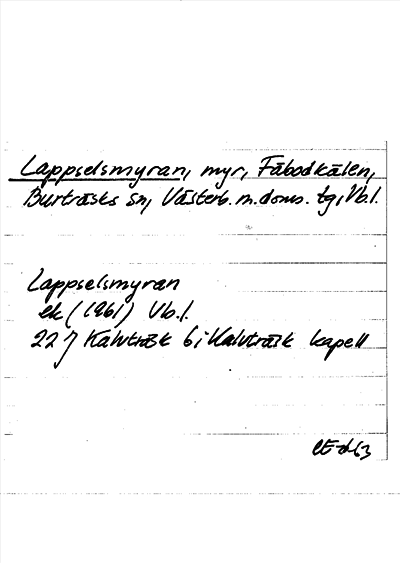 Lappselsmyran, myr, Fäbodkälen,
Burträsks sn, Västerb. m. doms. tg, Vb.l.
Lappselsmyran
ek (1961) Vb.l.
22 J Kalvträsk 6 i Kalvträsk kapell